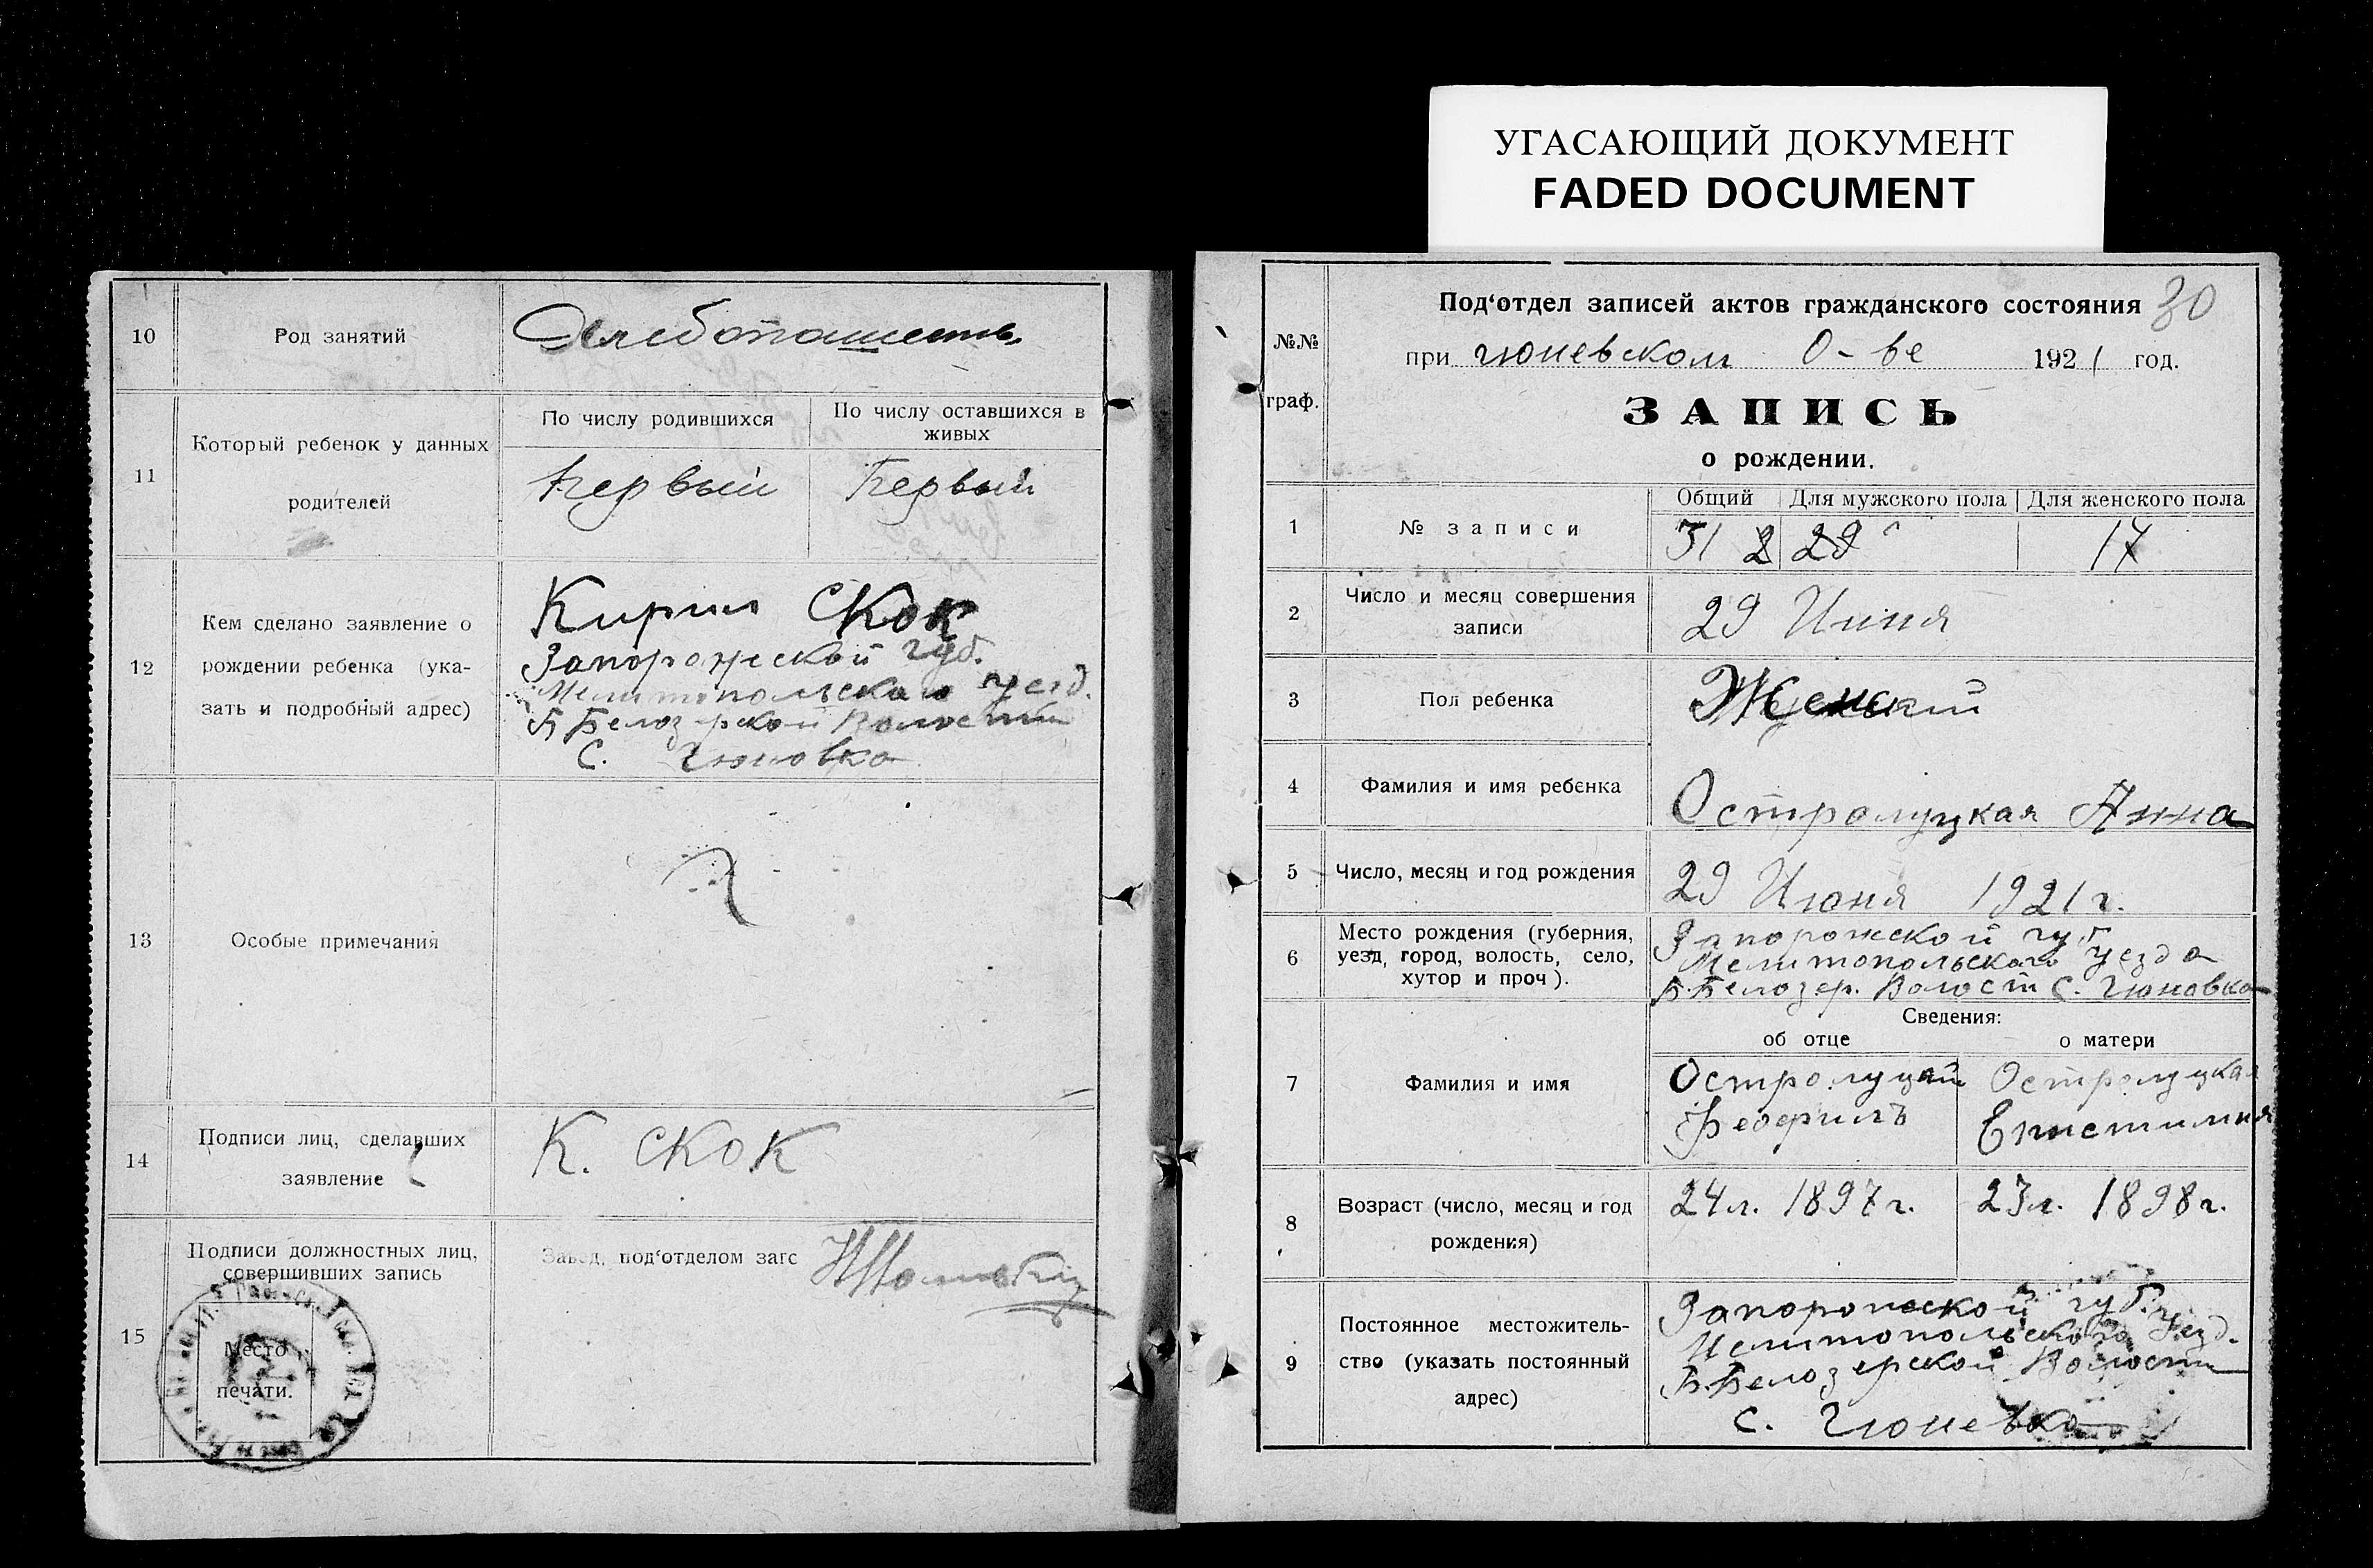 УГАСАЮЩИЙ ДОКУМЕНТ
FADED DOCUMENT
10
Род занятий
11
Который ребенок у данных
родителей
По числу родившихся
По числу оставшихся в
живых
Первый
Первый
12
Кем сделано заявление о
рождении ребенка (ука-
зать и подробный адрес)
Кирил Скок
Запорожской губ.
Мелитопольскаго уезд.
Б Белозерской Волости
С. Гюновка
13
Особые примечания
14
Подписи лиц, сделавших
заявление
К. Скок
15
Подписи должностных лиц,
совершивших запись
Завед. под‘отделом загс
Место
печати.
№№
граф.
Под‘отдел записей актов гражданского состояния 30
при гюневском О-ве 1921 год.
ЗАПИСЬ
о рождении.
1
№ записи
Общий
Для мужского пола
Для женского пола
17
2
Число и месяц совершения
записи
29 Июня
3
Пол ребенка
Женский
4
Фамилия и имя ребенка
Остролуцкая Анна
5
Число, месяц и год рождения
29 Июня 1921 г.
6
Место рождения (губерния,
уезд, город, волость, село,
хутор и проч).
Запорожской губ
Мелитопольскаго Уезда
Б. Белозер. Волости С. Гюновка
Сведения:
об отце
о матери
7
Фамилия и имя
Остролуцкий
Феофилъ
Остролуцкая
Епистимия
8
Возраст (число, месяц и год
рождения)
24 л. 1897 г.
23 л. 1898 г.
9
Постоянное местожитель-
ство (указать постоянный
адрес)
Запорожской губ.
Мелитопольскаго Уезд.
Б. Белозерской Волости
С. Гюневка